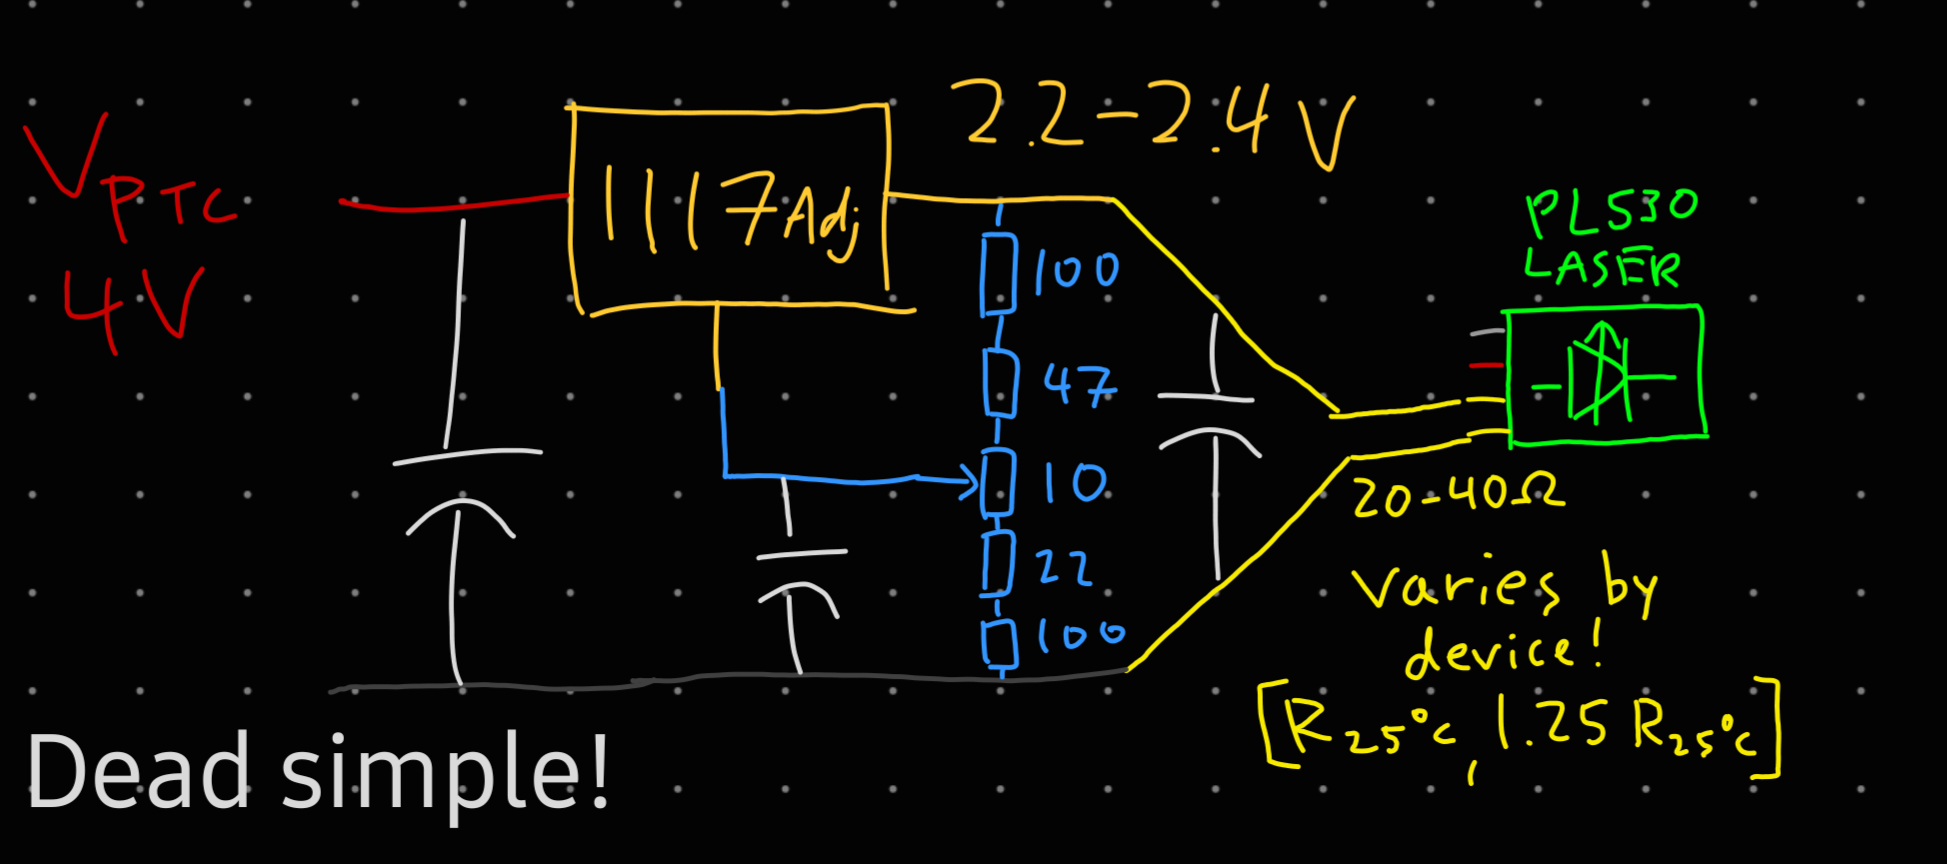 V PTC
4V
1117Adj
2.2-2.4V
100
47
10
22
100
PL530
LASER
20-40Ω
varies by
device!
[R25°C, 1.25 R25°C]
Dead simple!